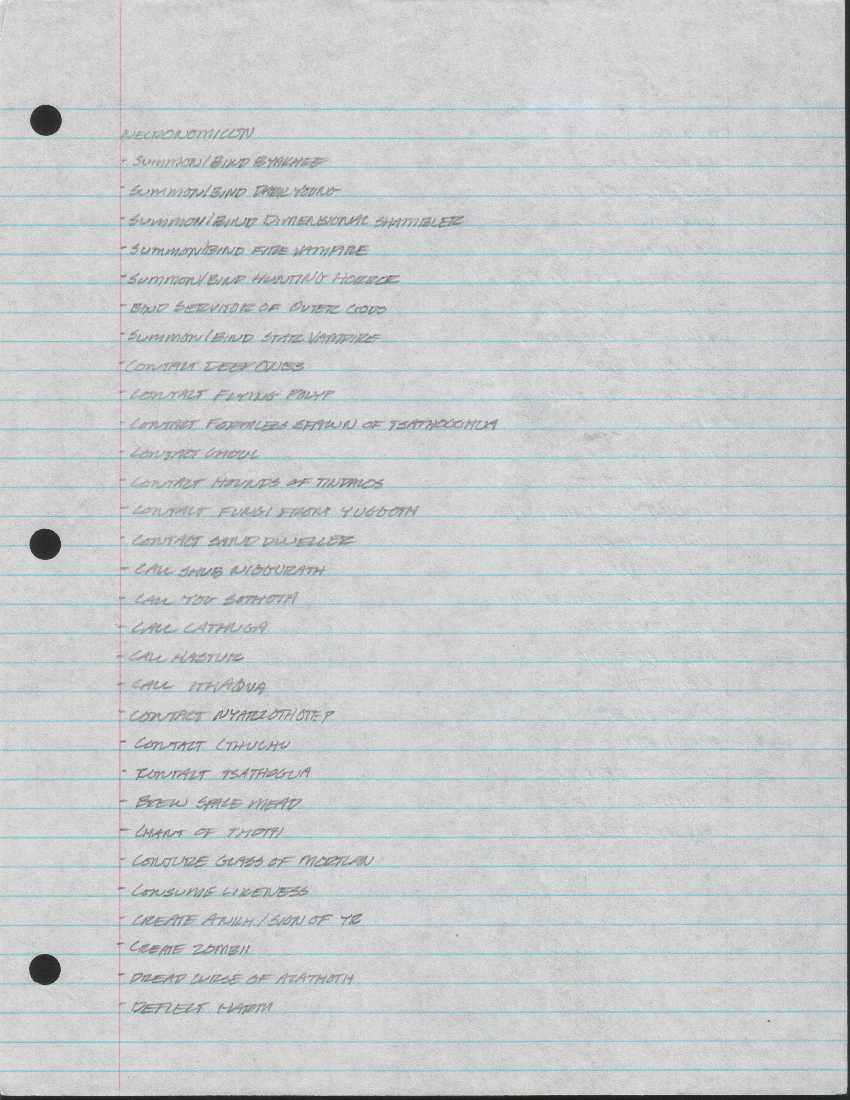 NECRONOMICON
- SUMMON/BIND BYAKHEE
- SUMMON/BIND DARK YOUNG
- SUMMON/BIND DIMENSIONAL SHAMBLER
- SUMMON/BIND FIRE VAMPIRE
- SUMMON/BIND HUNTING HORROR
- BIND SERVITOR OF OUTER GODS
- SUMMON/BIND STAR VAMPIRE
- CONTACT DEEP ONES
- CONTACT FLYING POLYP
- CONTACT FORMLESS SPAWN OF TSATHOGGHUA
- CONTACT GHOUL
- CONTACT HOUNDS OF TINDALOS
- CONTACT FUNGI FROM YUGGOTH
- CONTACT SAND DWELLER
- CALL SHUB NIGGURATH
- CALL YOG SOTHOTH
- CALL CATHUGA
- CALL HASTUR
- CALL ITHAQUA
- CONTACT NYARLOTHOTEP
- CONTACT CTHULHU
- CONTACT TSATHOGUA
- BREW SPACE MEAD
- CHANT OF THOTH
- CONJURE GLASS OF MORTLAN
- CONSUME LIKENESS
- CREATE / SIGN OF YR
- CREATE ZOMBII
- DREAD CURSE OF AZATHOTH
- DEFLECT HARM